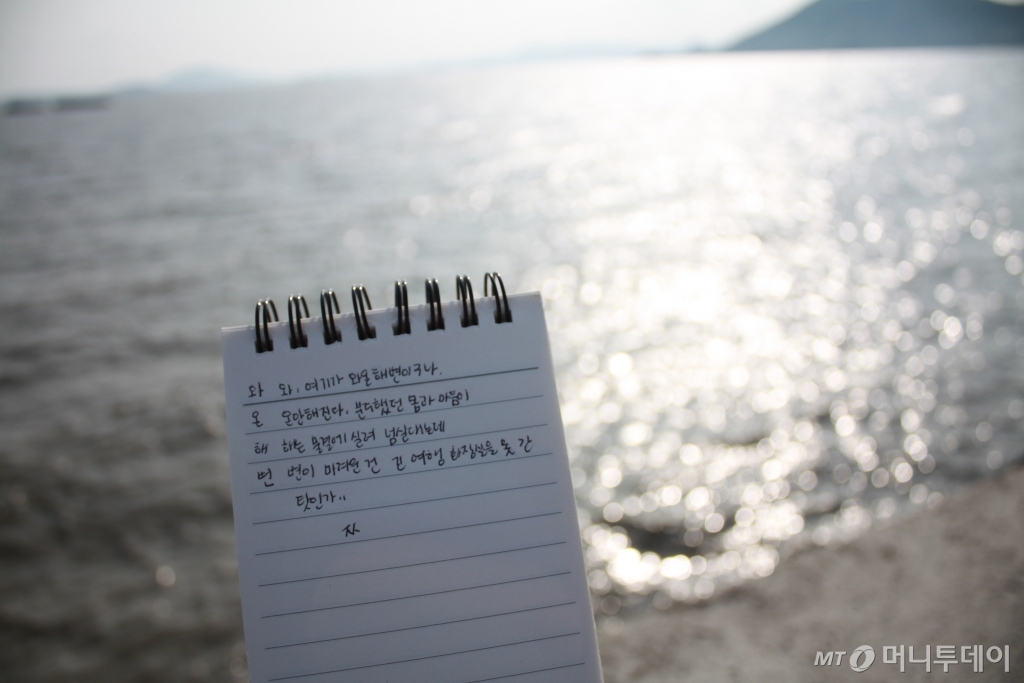 와 와, 여기가 와온해변이구나.
온 온안해진다. 분주했던 몸과 마음이
해 하는 물결에 실려 넘실대는데
변 변이 마려운 건 긴 여행 화장실을 못 간
탓인가..
MT 머니투데이